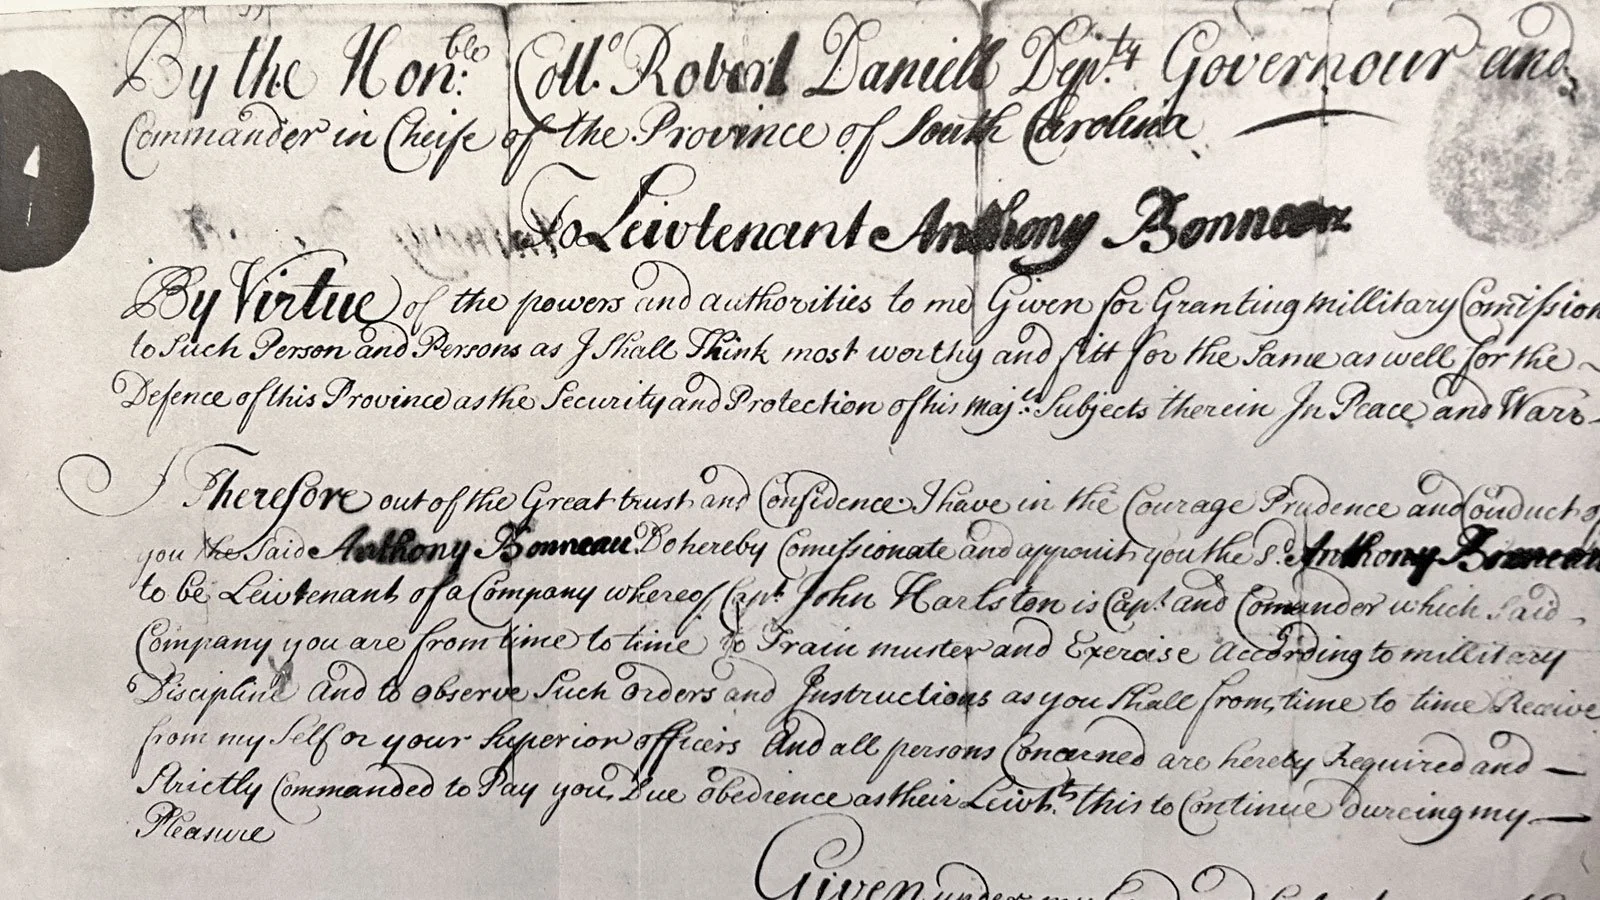 By the Hon:ble Coll.o Robert Daniell Dep.ty Governour and
Commander in Cheife of the Province of South Carolina
To Leiwtenant Anthony Bonneau
By Virtue of the powers and authorities to me Given for Granting millitary Comission
to Such Person and Persons as I Shall Think most worthy and fitt for the Same as well for the
Defence of this Province as the Security and Protection of his Maj.ts Subjects therein In Peace and Warr
I Therefore out of the Great trust and Confidence I have in the Courage Prudence and Conduct of
you the Said Anthony Bonneau Do hereby Comissionate and appoint you the S.d Anthony Bonneau
to be Leiwtenant of a Company whereof Cap.t John Harlston is Cap.t and Comander which Said
Company you are from time to time to Train muster and Exercise According to millitary
Discipline And to observe Such orders and Instructions as you Shall from time to time Receive
from my Self or your Superior officers And all persons Concerned are hereby Required and
Strictly Commanded to Pay you Due obedience as their Leiwt.t this to Continue dureing my
Pleasure
Given under my